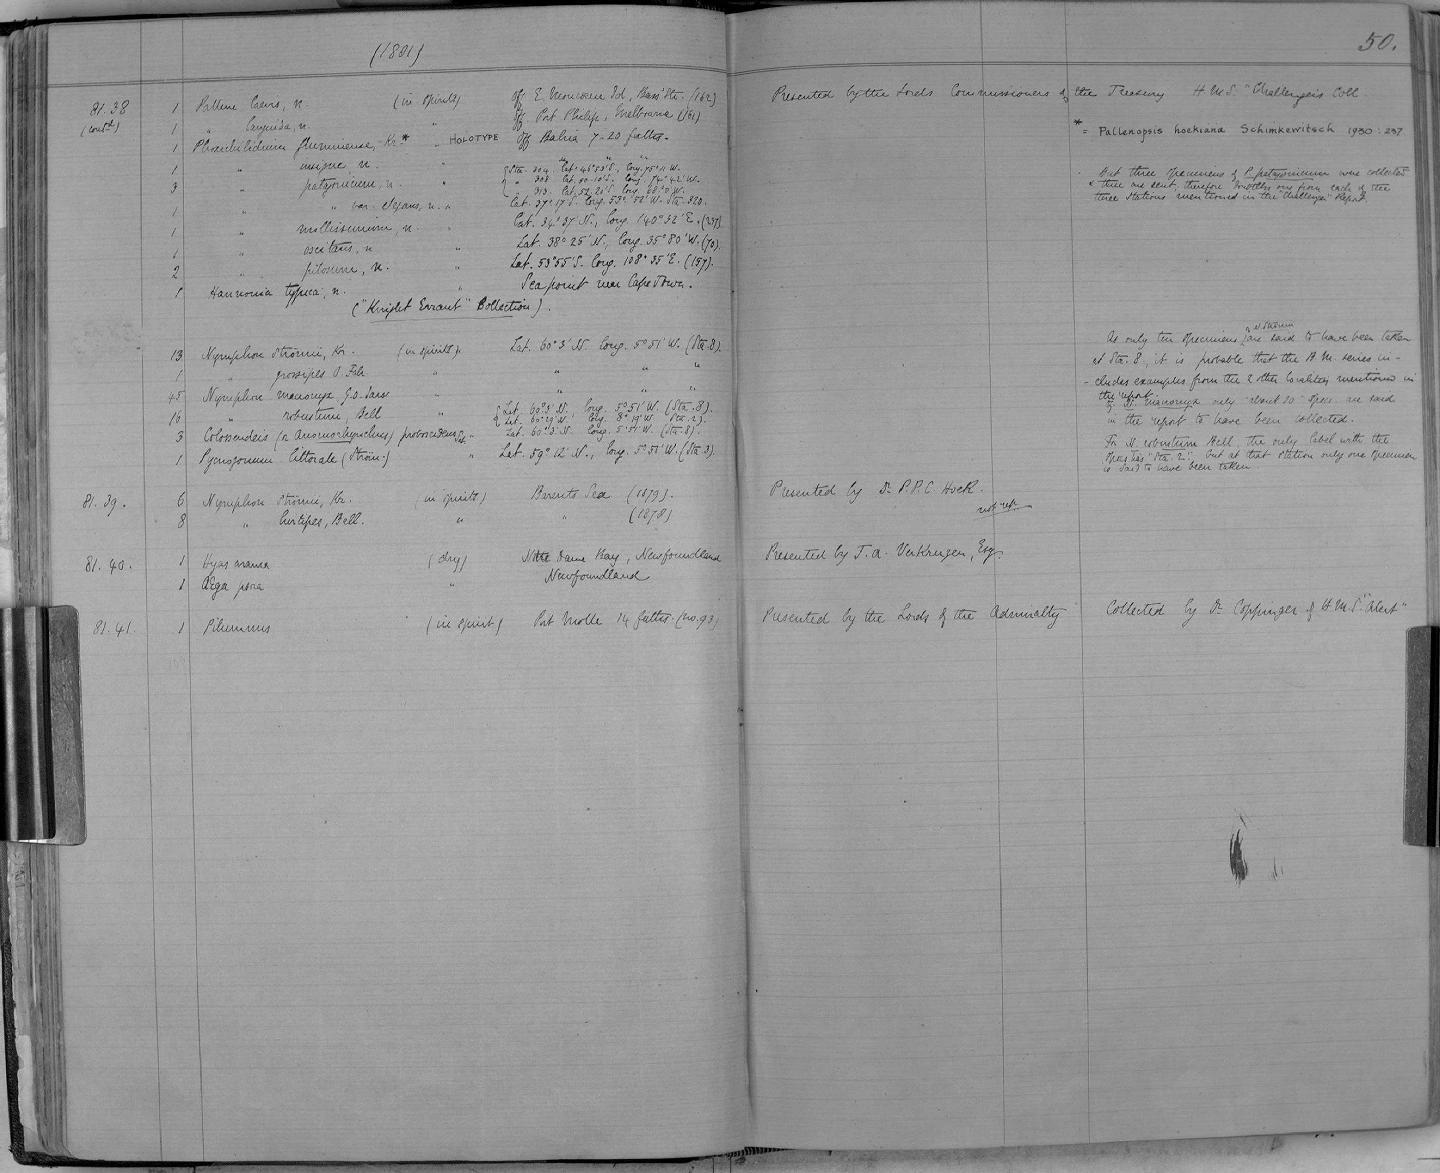 (1881)
50.
81.38 1 Pallene laevis, n. (in spirits) off E. Moncoeur Isd, Bass' Str. (162) Presented by the Lords Commissioners of the Treasury H.M.S. "Challenger's Coll.
(contd) 1 " languida, n. " off Port Philip, Melbourne (161)
1 Phoxichilidium fluminense, Kr.* " HOLOTYPE off Bahia 7-20 faths.
* = Pallenopsis hoekiana Schimkewitsch 1930: 237
1 " insigne n. "
3 " patagonicum, n. " { Sta. 304 Lat. 46° 53' S., long. 75° 11' W.
" 308 Lat. 50° 10' S. long. 74° 42' W.
" 313. Lat. 52° 20' S. long. 68° 0' W.
But three specimens of P. patagonicum were collected
& three are sent, therefore doubtless one from each of the
three stations mentioned in the "Challenger" Report.
1 " " var. elegans, n. " Lat. 37° 17' S. long. 53° 52' W. Sta. 320.
1 " mollissimum, n. " Lat. 34° 37' N., long. 140° 32' E. (237)
1 " oscitans, n " Lat. 38° 25' N., long. 35° 80' W. (70).
2 " pilosum, n. " Lat. 53° 55' S. long. 108° 35' E. (157).
1 Hannonia typica, n. " Sea point near Cape Town.
("Knight Errant" Collection).
13 Nymphon strömii, Kr. (in spirits). Lat. 60° 3' N. long. 5° 51' W. (Sta. 8).
As only ten specimens of N. strömii are said to have been taken
at Sta. 8, it is probable that the B.M. series in-
-cludes examples from the 2 other localities mentioned in
the report.
1 " grossipes O. Fab. " " " "
45 Nymphon macronyx, G.O. Sars " " " "
Of N. macronyx only about 20 specs. are said
in the report to have been collected.
16 " robustum, Bell " { Lat. 60° 3' N., long. 5° 51' W. (Sta. 8).
Lat. 60° 29' N. long. 8° 19' W. Sta. 2).
For N. robustum Bell, the only label with the
specs has "Sta. 2", but at that station only one specimen
is said to have been taken
3 Colossendeis (or Anomorhynchus) proboscidea " Lat. 60° 3' N. long. 5° 51' W. (Sta. 8).
1 Pycnogonum littorale (Ström.) " Lat. 59° 12' N., long. 5° 57' W. (Sta. 3).
81.39. 6 Nymphon strömii, Kr. (in spirits) Barents Sea (1879). Presented by Dr. P.P.C. Hoek.
8 " hirtipes, Bell. " " (1878)
81.40. 1 Hyas aranea (dry) Notre Dame Bay, Newfoundland Presented by T. A. Verkruzen, Esq.
1 Aega psora " Newfoundland
81.41. 1 Pilumnus (in spirit) Port Molle 14 faths. (no. 93) Presented by the Lords of the Admiralty Collected by Dr. Coppinger of H.M.S. "Alert"